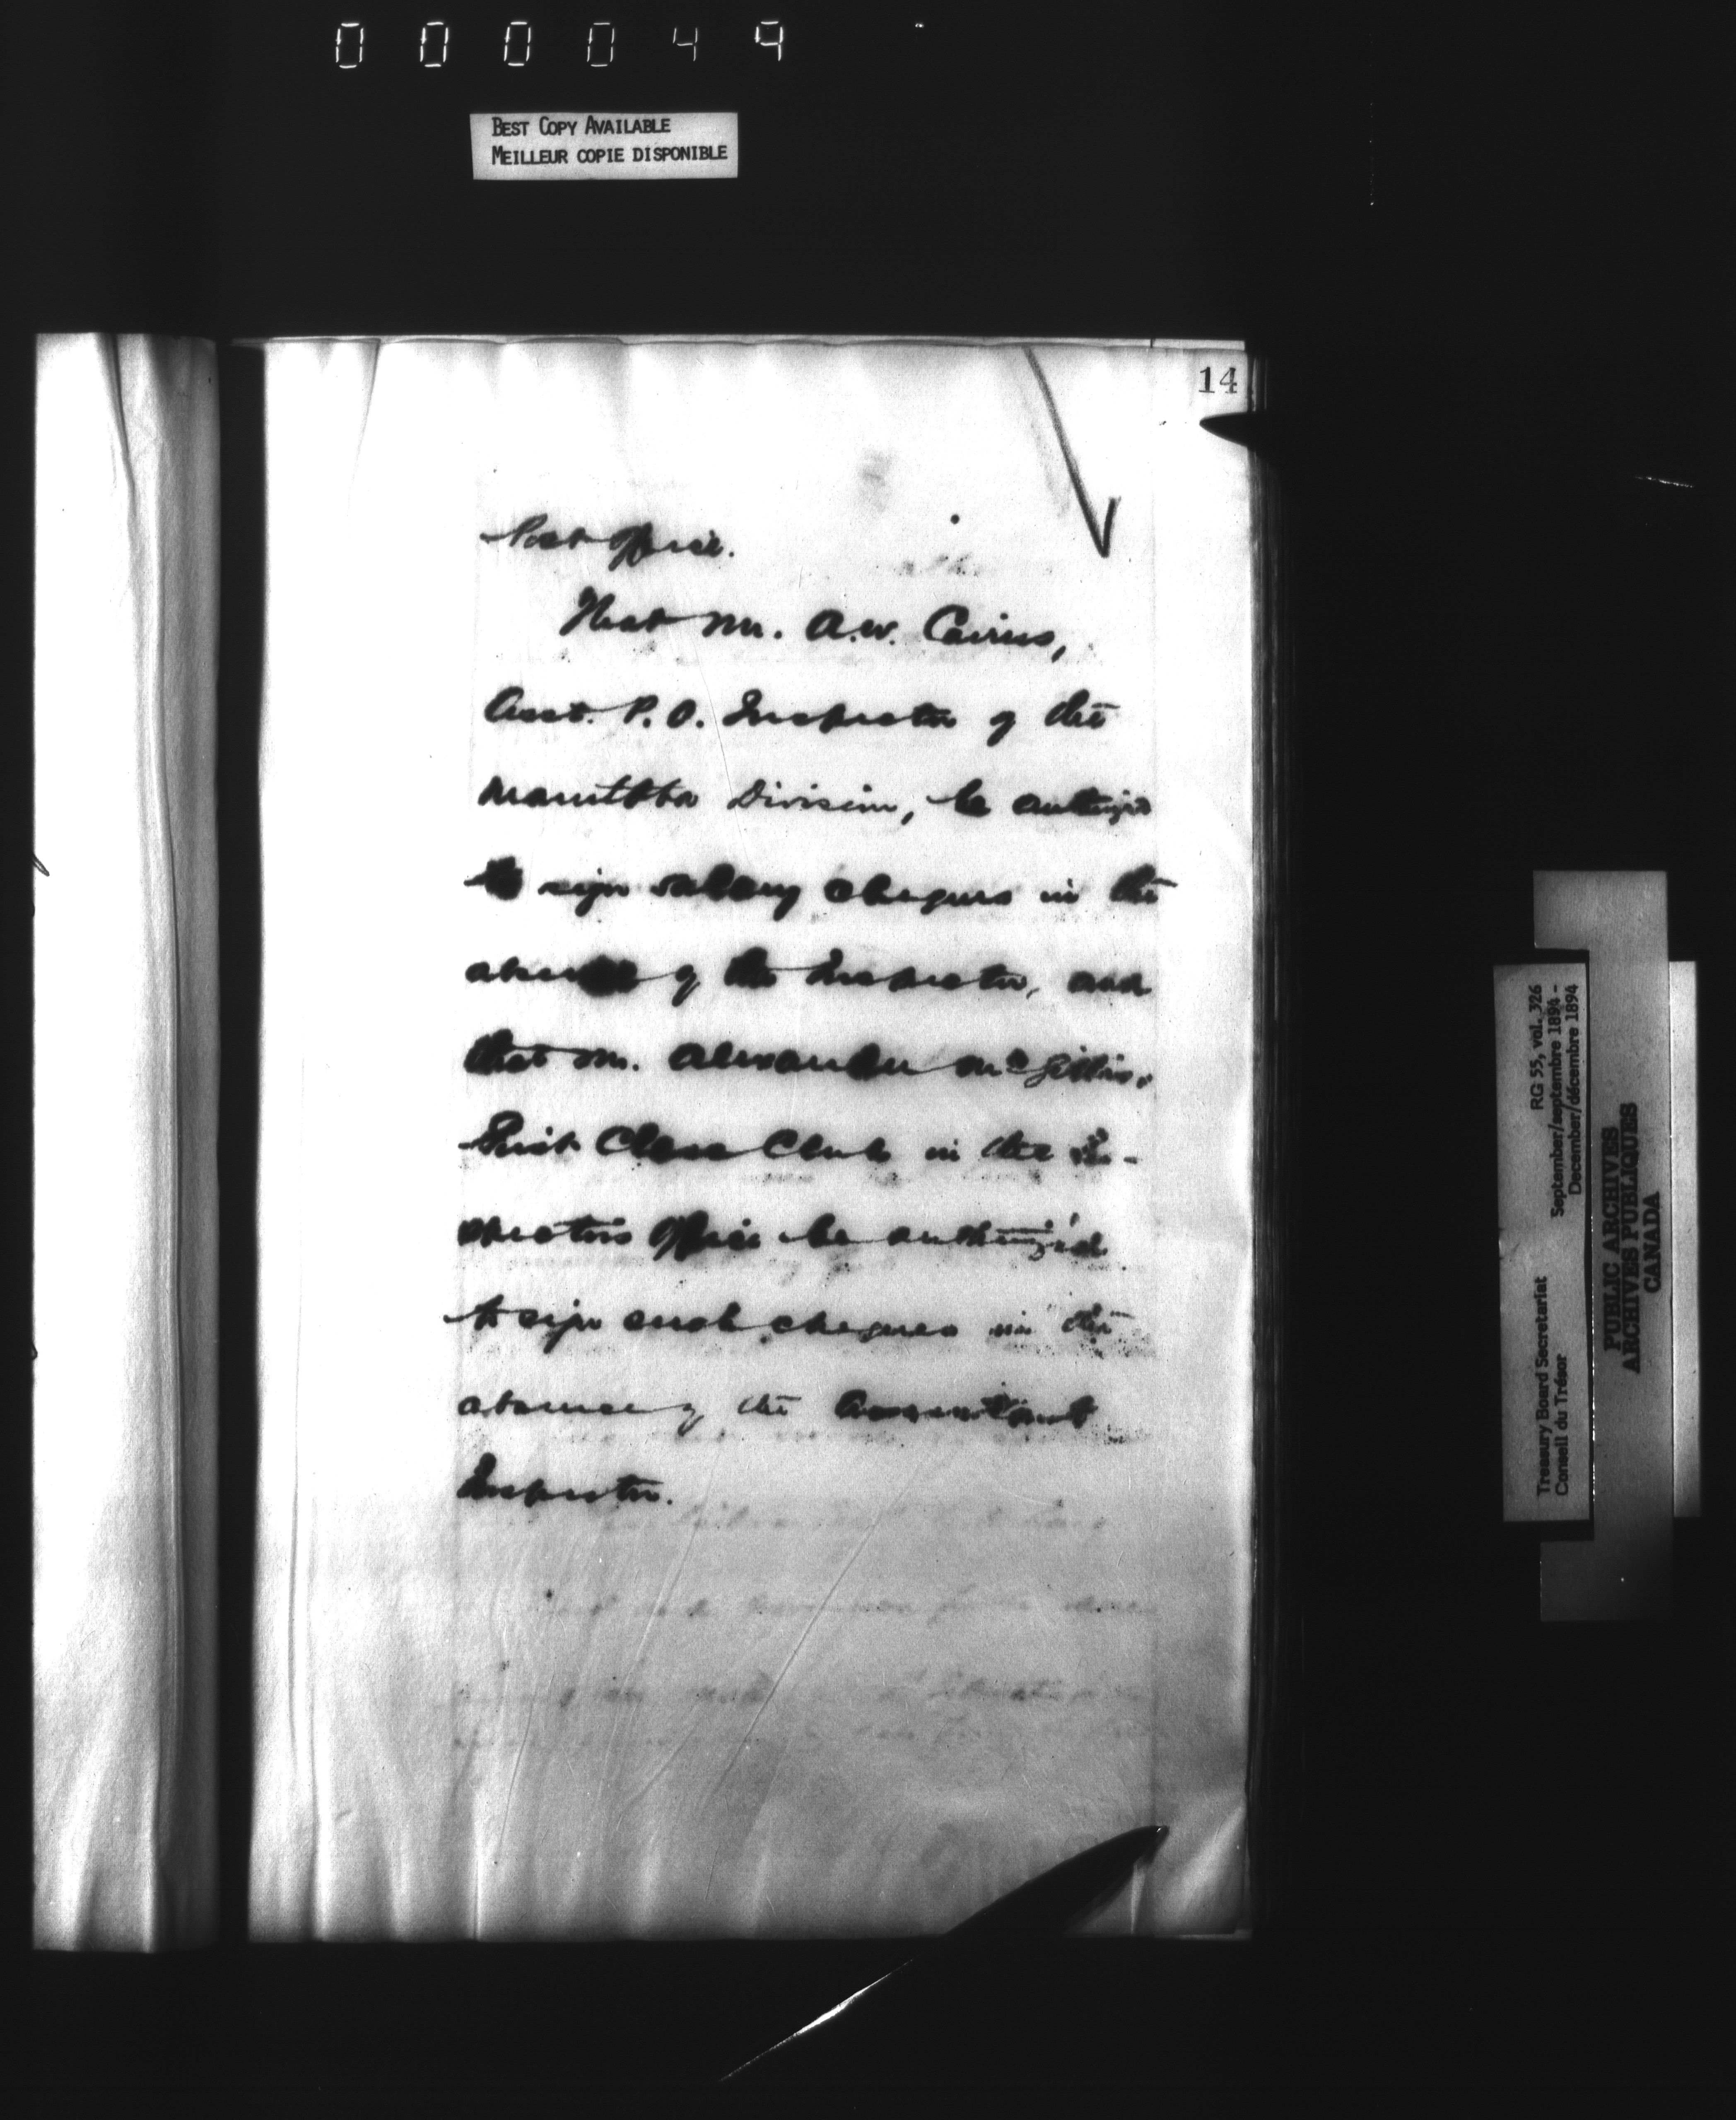 000049
BEST COPY AVAILABLE
MEILLEUR COPIE DISPONIBLE
14
Post Office.
That Mr. A.W. Cairns,
Asst. P.O. Inspector of the
Manitoba Division, be authorized
to sign salary cheques in the
absence of the Inspector, and
that Mr. Alexander McGillis,
First Class Clerk in the In-
spectors Office be authorized
to sign such cheques in the
absence of the Assistant
Inspector.
Treasury Board Secretariat RG 55, vol. 326
Conseil du Trésor September/septembre 1894 -
December/décembre 1894
PUBLIC ARCHIVES
ARCHIVES PUBLIQUES
CANADA